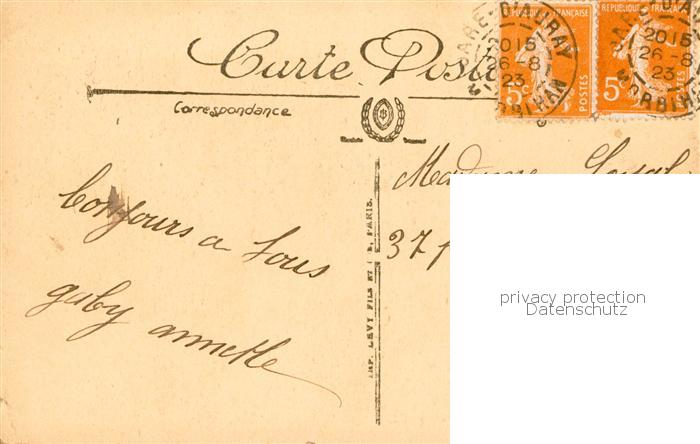 Carte Postale
Correspondance
REPUBLIQUE FRANÇAISE
REPUBLIQUE FRANÇAISE
5c POSTES
5c POSTES
GARE D'AURAY
2015
26-8
23
MORBIHAN
2015
26-8
23
MORBIHAN
Madame
371
bonjours a tous
gaby annette
IMP. LEVY FILS ET CIE. PARIS.
privacy protection
Datenschutz